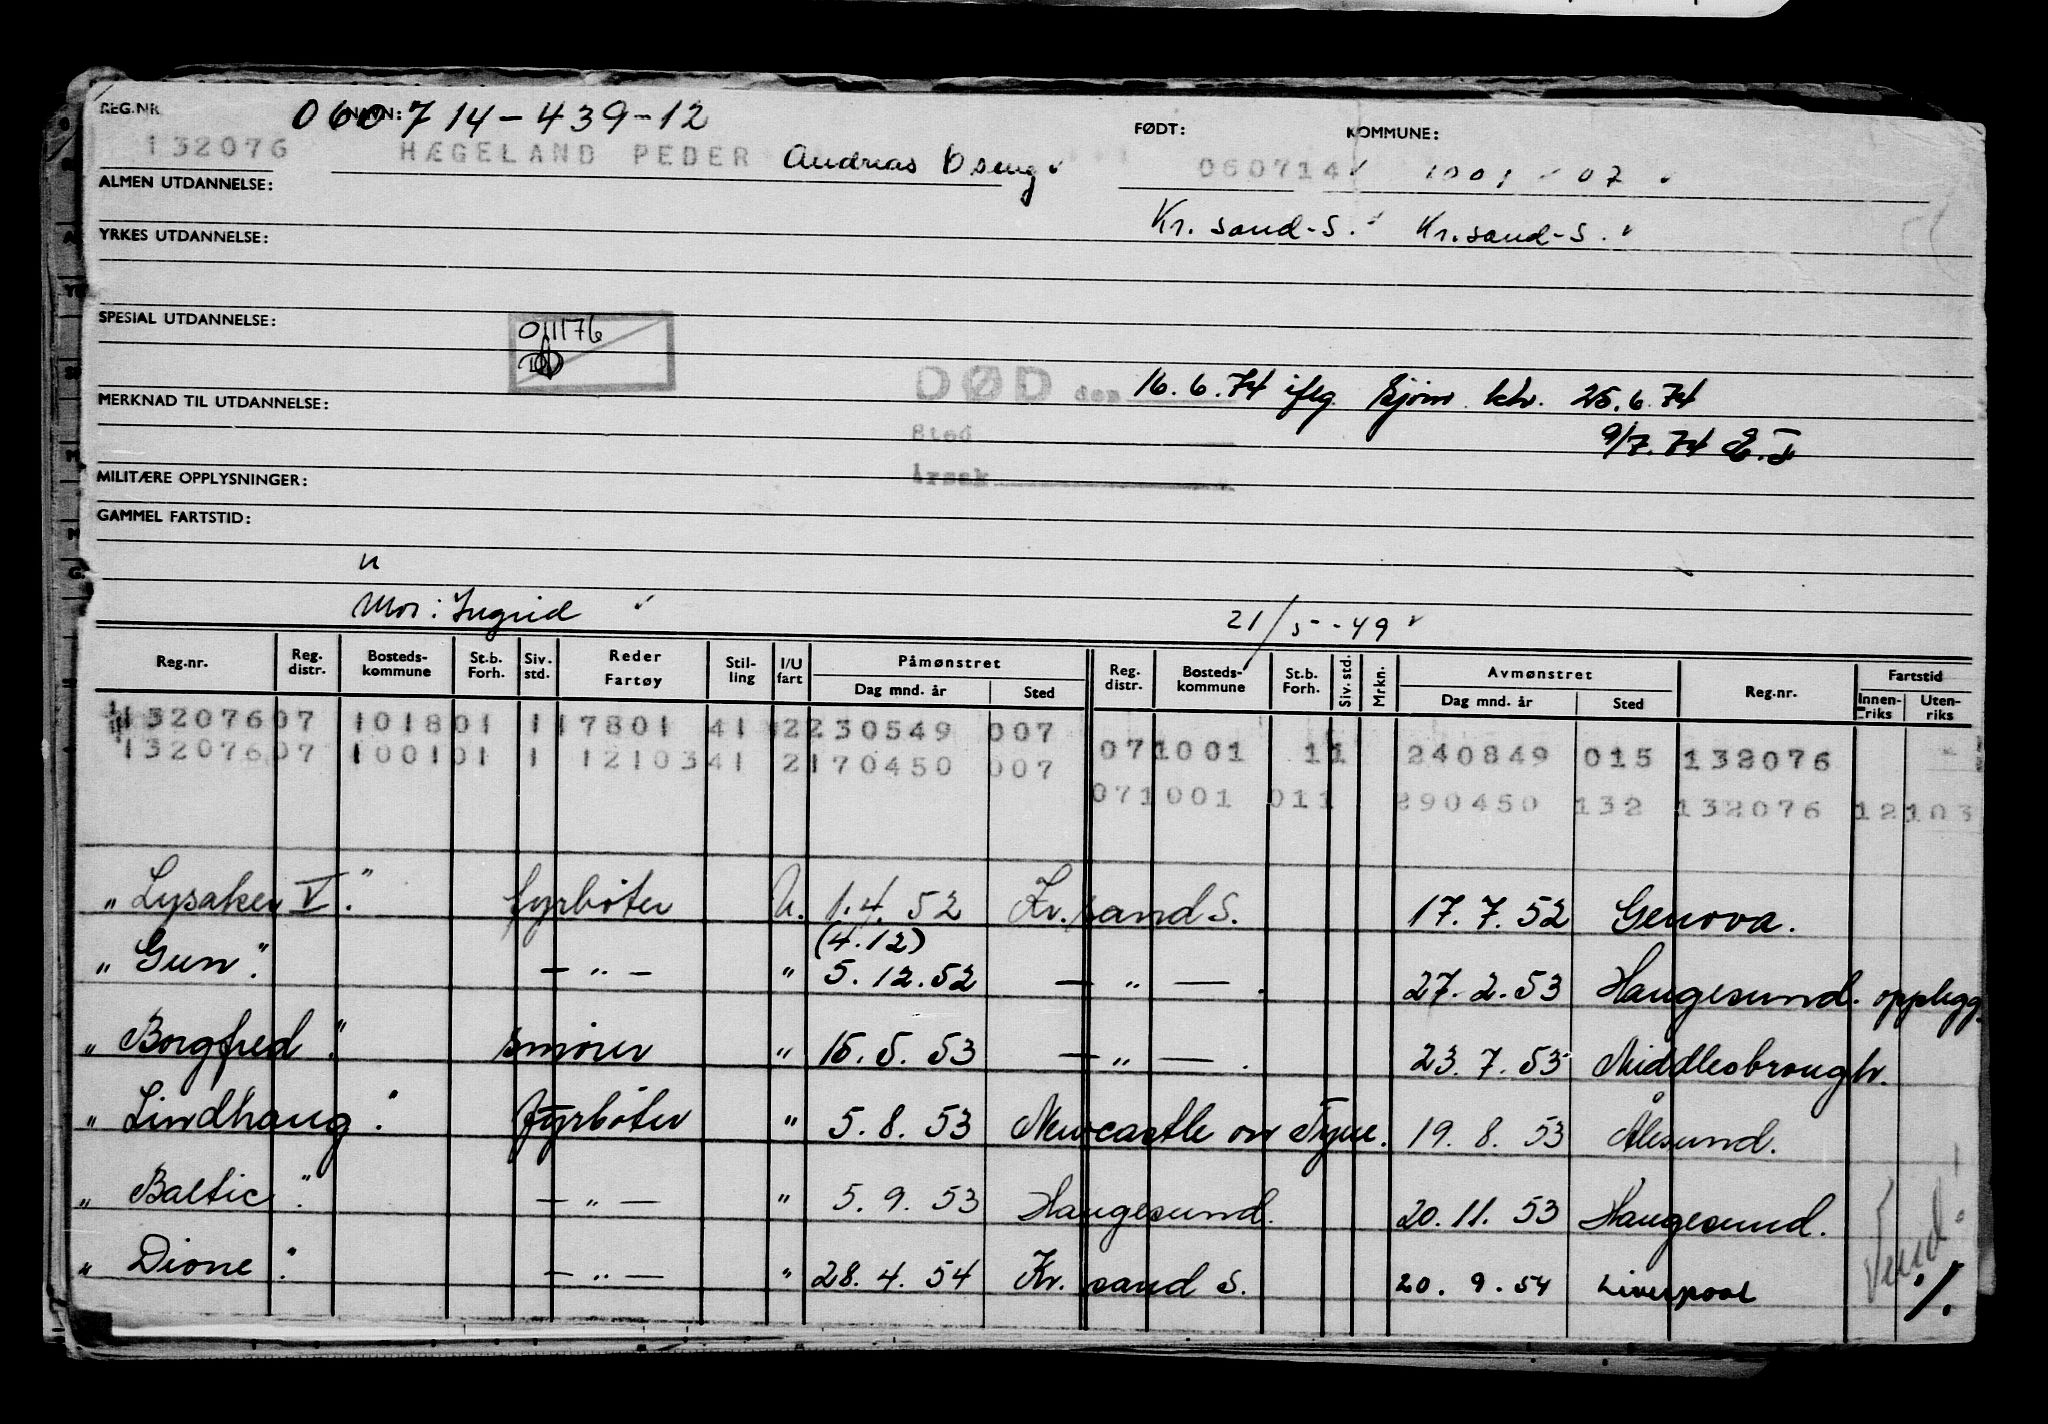 REG.NR. NAVN: 060714-439-12 FØDT: KOMMUNE:
132076 HÆGELAND PEDER Andreas 060714 1001 07
ALMEN UTDANNELSE:
Kr. sand-S. Kr. sand-S.
YRKES UTDANNELSE:
SPESIAL UTDANNELSE:
011176
DØD den 16.6.74 iflg. sjøm. ktr. 25.6.74
MERKNAD TIL UTDANNELSE:
Sted 9/7.74 E.T
MILITÆRE OPPLYSNINGER:
Årsak
GAMMEL FARTSTID:
u
Mor: Ingrid 21/5-49
Reg.nr. Reg. distr. Bosteds-kommune St.b. Forh. Siv. std. Reder Fartøy Stil-ling I/U fart Påmønstret Dag mnd. år Sted Reg. distr. Bosteds-kommune St.b. Forh. Siv. std. Mrkn. Avmønstret Dag mnd. år Sted Reg.nr. Fartstid Innen-riks Uten-riks
132076 07 1018 01 1 17801 41 2 230549 007 07 1001 11 240849 015 132076
132076 07 1001 01 1 121034 1 2 170450 007 07 1001 011 290450 132 132076 12103
"Lysaker V". fyrbøter U. 1.4.52 Kr.sand S. 17.7.52 Genova.
(4.12)
"Gun". — " — " 5.12.52 — " — . 27.2.53 Haugesund. opplegg.
"Borgfred". smører " 15.5.53 — " — . 23.7.53 Middlesbrough.
"Lindhaug". fyrbøter " 5.8.53 Newcastle on Tyne. 19.8.53 Ålesund.
"Baltic". — " — " 5.9.53 Haugesund. 20.11.53 Haugesund.
"Dione". — " — " 28.4.54 Kr. sand S. 20.9.54 Liverpool
Vend ./.